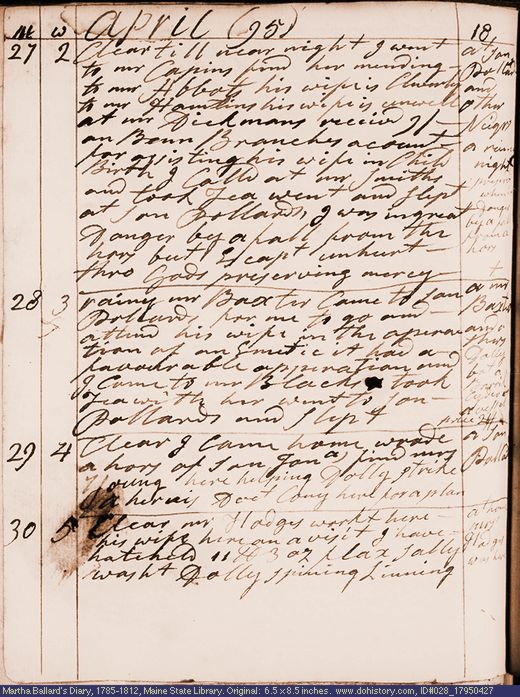 M W April (95) 18
27 2 Clear till near night I went at Son
to mr Capins find her mending – Pollard
to mr Abbots his wife is Cleverly and
to mr Hamlins his wife is unwell other
at mr Dickmans receivd 9/ – Neighbrs
on Benn Branchs acount
for assisting his wife in Child night
Birth I Calld at mr Smiths
and took Tea went and slept
at Son Pollards, I was in great
Danger by a fall from the by a
hors but Escapt unhurt –
thro Gods preserving mercy – hors
28 3 rainy mr Baxter Came to Son a mr
Pollards for me to go and – Baxters
attend his wife in the opera
tion of an Emetic it had a
favourable opperation and
I Came to mr Blacks took
Tea with her went to Son –
Pollards and slept
29 4 Clear I Came home, at Son
a hors of Son Jona, find mrs Pollards
Young here helping Dolly strike
her is Doct Cony here for a plan
30 5 Clear mr Hodges workt here – at home
his wife here on a visit I have – mrs
hatcheld 11 lb 3 oz flax Sally Hodges
washt Dolly spining Linning was here
Martha Ballard's Diary, 1785-1812, Maine State Library. Original: 6.5 x 8.5 inches. www.dohistory.com, ID#028_17950427